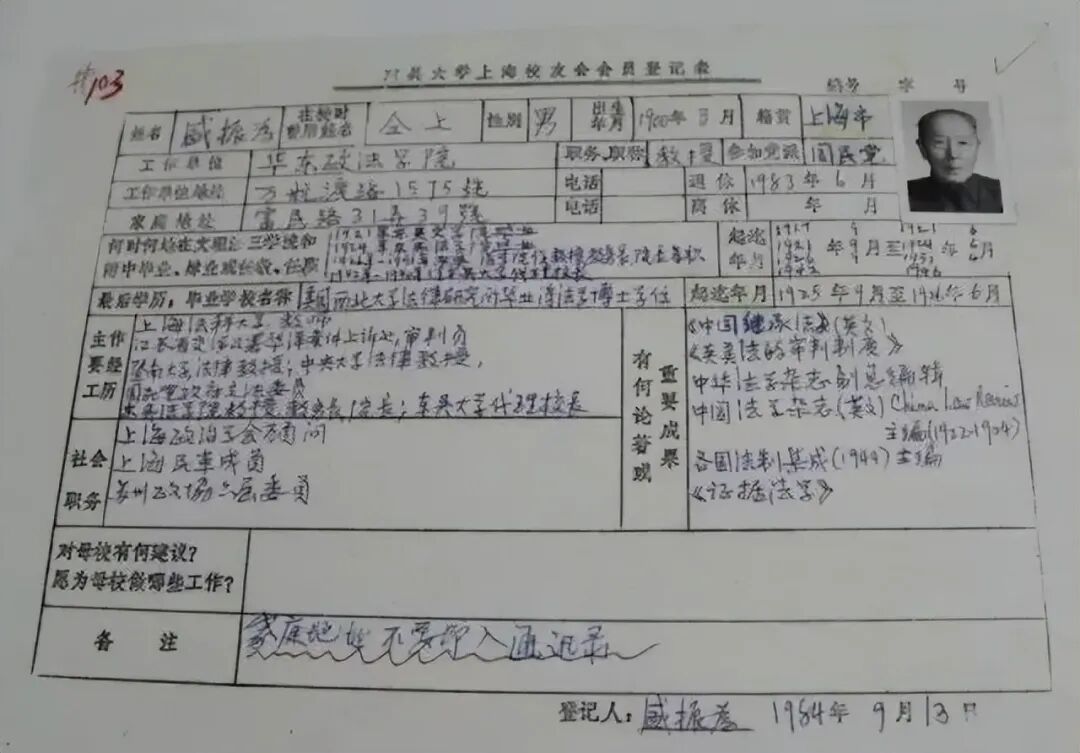 103
大学上海校友会会员登记表
编号 字 号
姓名 盛振为 在校时曾用姓名 仝上 性别 男 出生年月 1900年3月 籍贯 上海市
工作单位 华东政法学院 职务、职称 教授 参加党派 国民党
工作单位地址 万航渡路1575號 电话 退休 1983年6月
家庭地址 富民路31弄39號 电话 离休 年 月
何时何地在文理法三学院和附中毕业、肄业或任教、任职
1921
1924
起迄年月
最后学历，毕业学校名称 美国西北大学法律研究所毕业得法学博士学位 起迄年月 1925年9月至1926年6月
主要工作经历
上海法科大学 教师
暨南大学法律教授；中央大学法律教授，
国民党政府立法委员
东吴法学院教授，教务长，院长；东吴大学代理校长
社会职务
上海政治学会顾问
上海民革成员
苏州政协六届委员
有何论著或重要成果
《中国继承法》(英文)，
《英美法的审判制度》
中华法学杂志副总编辑
中国法学杂志(英文) China Law Review
主编
各国法制集成(1944)主编
《证据法学》
对母校有何建议？
愿为母校做哪些工作？
备 注 家庭地址不要印入通讯录
登记人：盛振为 1984年9月13日